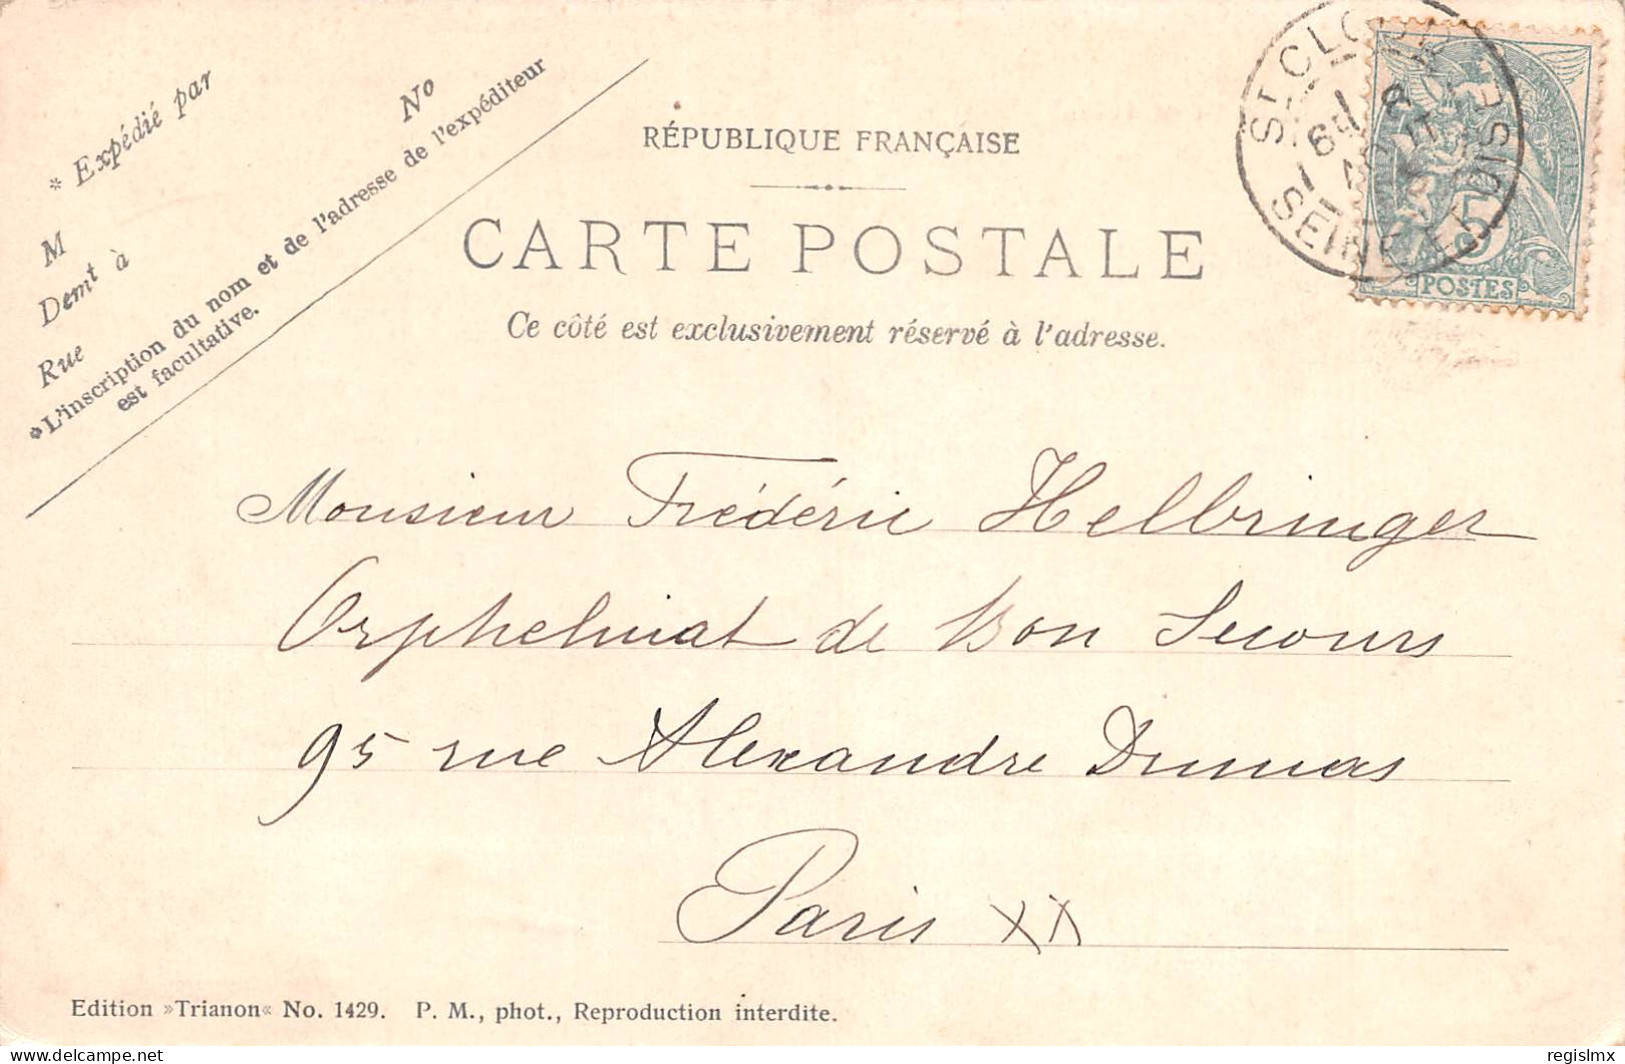 * Expédié par
No
M
Demt à
Rue
*L'inscription du nom et de l'adresse de l'expéditeur
est facultative.
RÉPUBLIQUE FRANÇAISE
CARTE POSTALE
Ce côté est exclusivement réservé à l'adresse.
ST CLOUD
SEINE ET OISE
5
POSTES
Monsieur Frédéric Helbringer
Orphelinat de Bon Secours
95 rue Alexandre Dumas
Paris XX
Edition »Trianon« No. 1429. P. M., phot., Reproduction interdite.
delcampe.net
regislmx